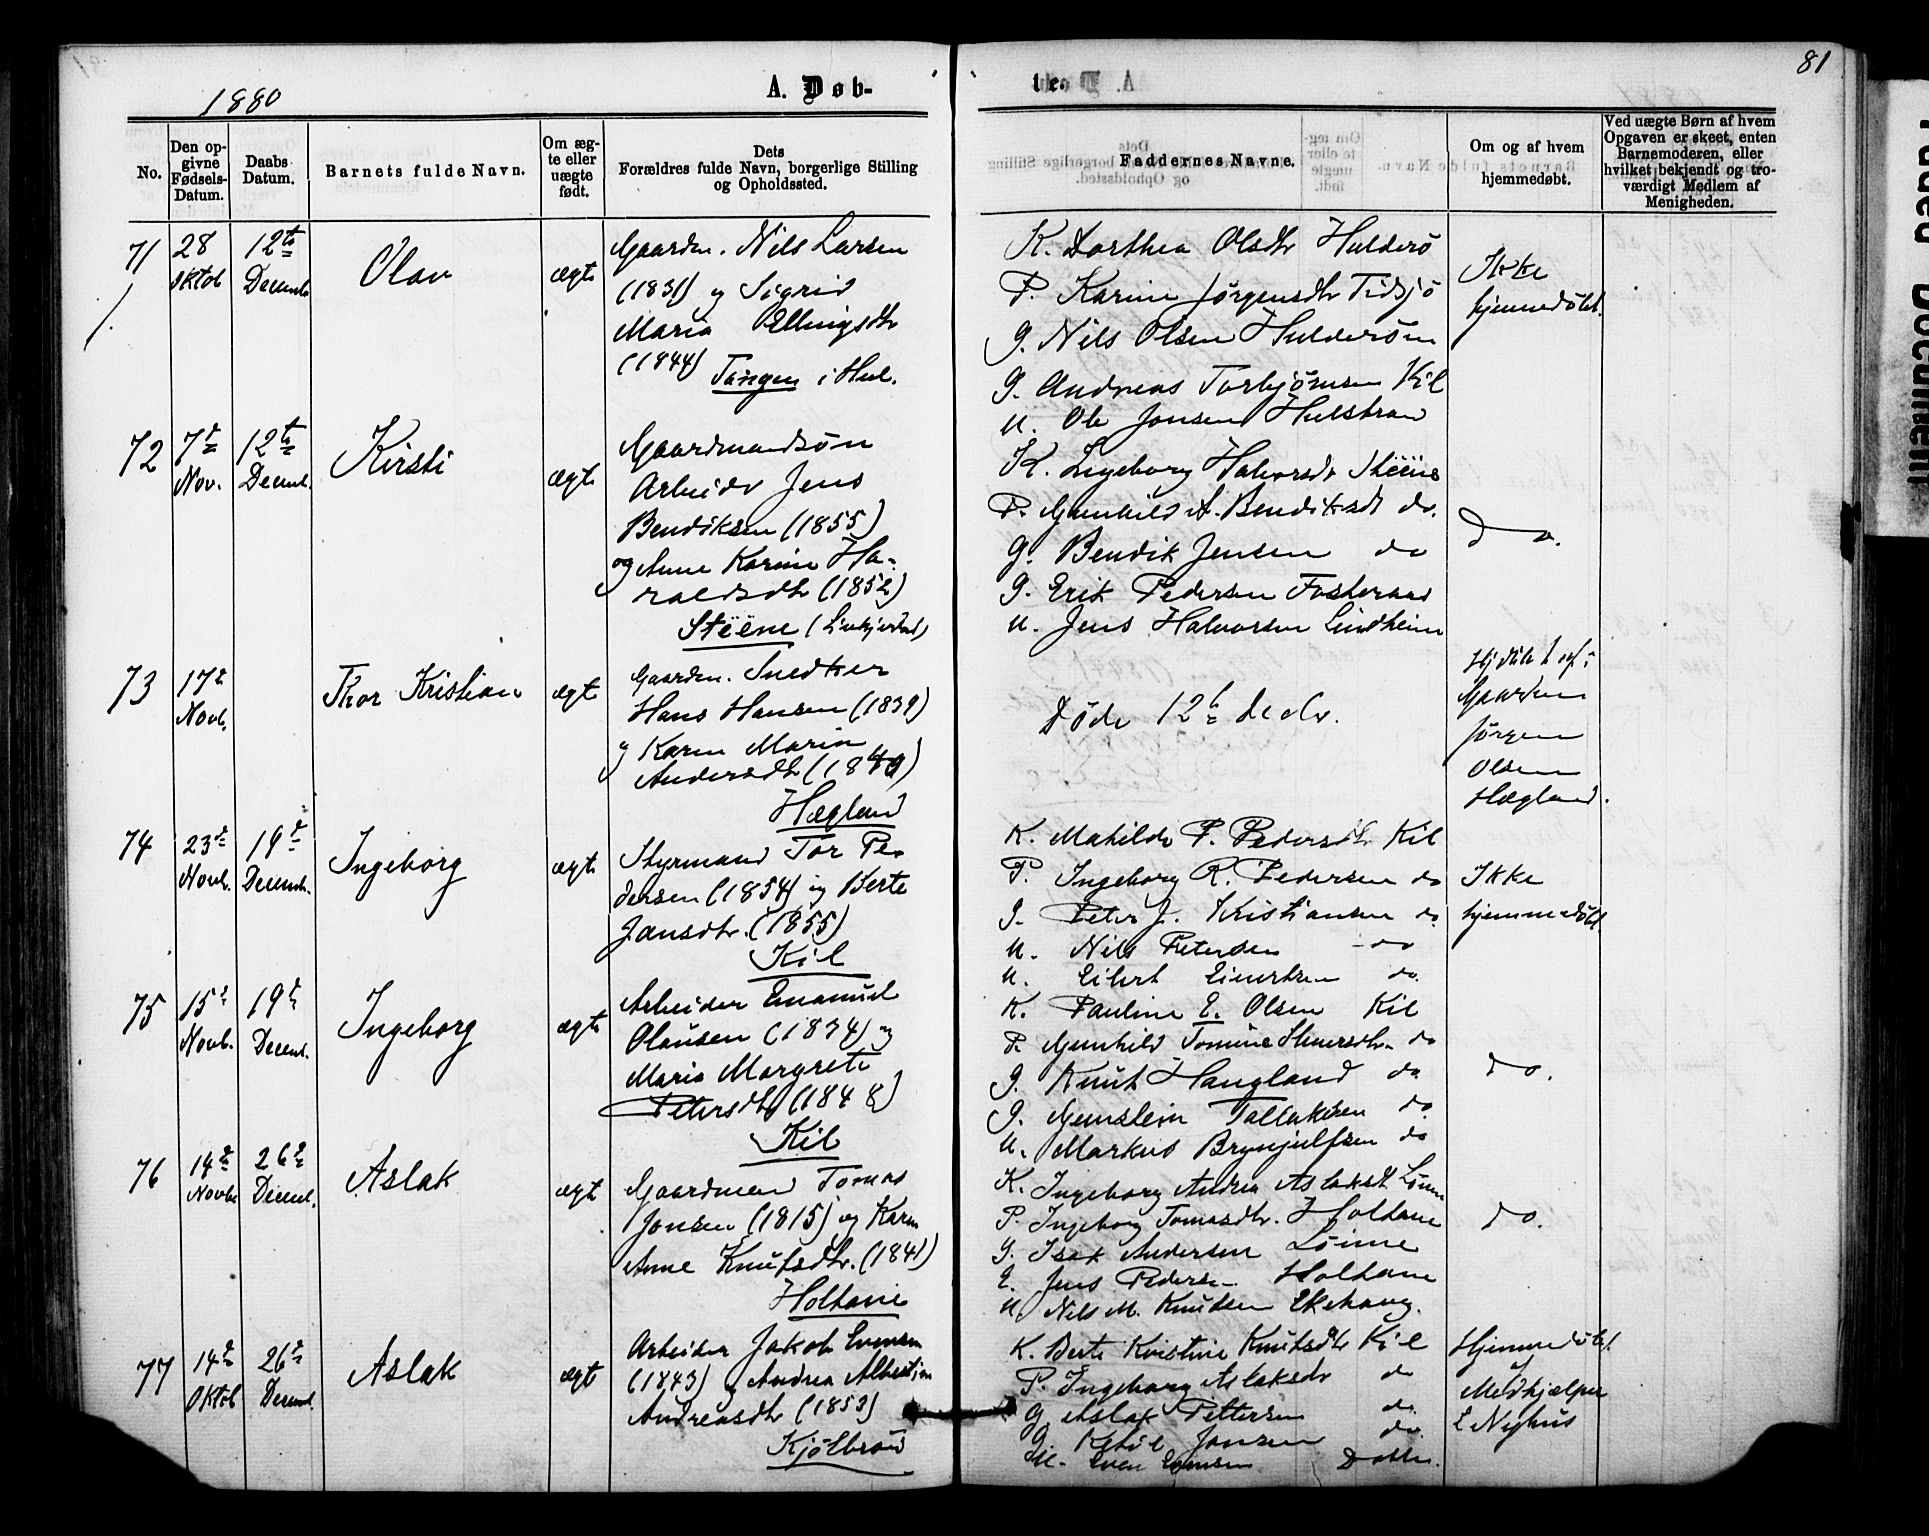 1880
A. Døb-
te.
81
No.
Den op-
givne
Fødsels-
Datum.
Daabs
Datum.
Barnets fulde Navn.
Om æg-
te eller
uægte
født.
Dets
Forældres fulde Navn, borgerlige Stilling
og Opholdssted.
Faddernes Navne.
Om og af hvem
hjemmedøbt.
Ved uægte Børn af hvem
Opgaven er skeet, enten
Barnemoderen, eller
hvilket bekjendt og tro-
værdigt Medlem af
Menigheden.
71
28
Oktob
12te
Decemb.
Olav
ægte
Gaardm. Nils Larsen
(1831) og Sigrid
Maria Ellingsdtr
(1844)
Tangen i Hul.
K. Dorthea Olsdtr Hulderö
P. Karine Jørgensdtr Tidsjö
G. Nils Olsen Hulderöen
G. Andreas Torbjörnsen Kil
U. Ole Jonsen Hulstran
Ikke
hjemmedöbt.
72
7de
Nov.
12te
Decemb.
Kirsti
ægte
Gaardmandsön
Arbeider Jens
Bendiksen (1855)
og Anne Karine Ha-
raldsdtr (1852)
Stëëne
K. Ingeborg Halvorsdtr Stëëne
P. Gunhild A. Bendiksdt do.
G. Bendik Jensen do
G. Erik Pedersen Fosteraas
U. Jens Halvorsen Lindheim
do.
73
17de
Novb.
Thor Kristian
ægte
Gaardm. Snedker
Hans Hansen (1839)
og Karen Maria
Andersdtr (1840)
Hægland
Döde 12te Decbr.
Hjdöbt af
Gaardm
Jörgen
Olsen
Hægland.
74
23de
Novb.
19de
Decemb.
Ingeborg
ægte
Styrmand Tor Pe-
dersen (1854) og Berte
Jansdtr. (1855)
Kil
K. Mathilde P. Pedersdtr Kil
P. Ingeborg R. Pedersen do
G. Peter J. Kristiansen do
U. Nils Petersen do
U. Eilert Einertsen do
Ikke
hjemmedöbt.
75
15de
Novb.
19de
Decemb.
Ingeborg
ægte
Arbeider Emanuel
Olausen (1834) og
Maria Margrete
Petersdtr (1848)
Kil
K. Pauline E. Olsen Kil
P. Gunhild Tomine do
G. Knut Haugland do
G. Gunstein Tallaksen do
U. Markus Brynjulfsen do
do.
76
14de
Novbr
26de
Decemb.
Aslak
ægte
Gaardmand Tomas
Jonsen (1815) og Karen
Anne Knutsdtr. (1841)
Holtane
K. Ingeborg Andrea Aslaksdt Lönne
P. Ingeborg Tomasdtr. Holtane
G. Isak Andersen Lönne
E. Jens Pedersen Holtane
U. Nils M. Knudsen Ekehaug.
do.
77
14de
Oktob
26de
Decemb.
Aslak
ægte
Arbeider Jakob Evensen
(1843) og Andrea Albertine
Andreasdtr (1853)
Kjölbrönd
K. Berte Kristine Knutsdtr Kil
P. Ingeborg Aslaksdtr do
G. Aslak Pettersen do.
G. Ketil Jonsen do.
U. Even Evensen Ditto.
Hjemmedöbt
af
Medhjælper
E Nyhus